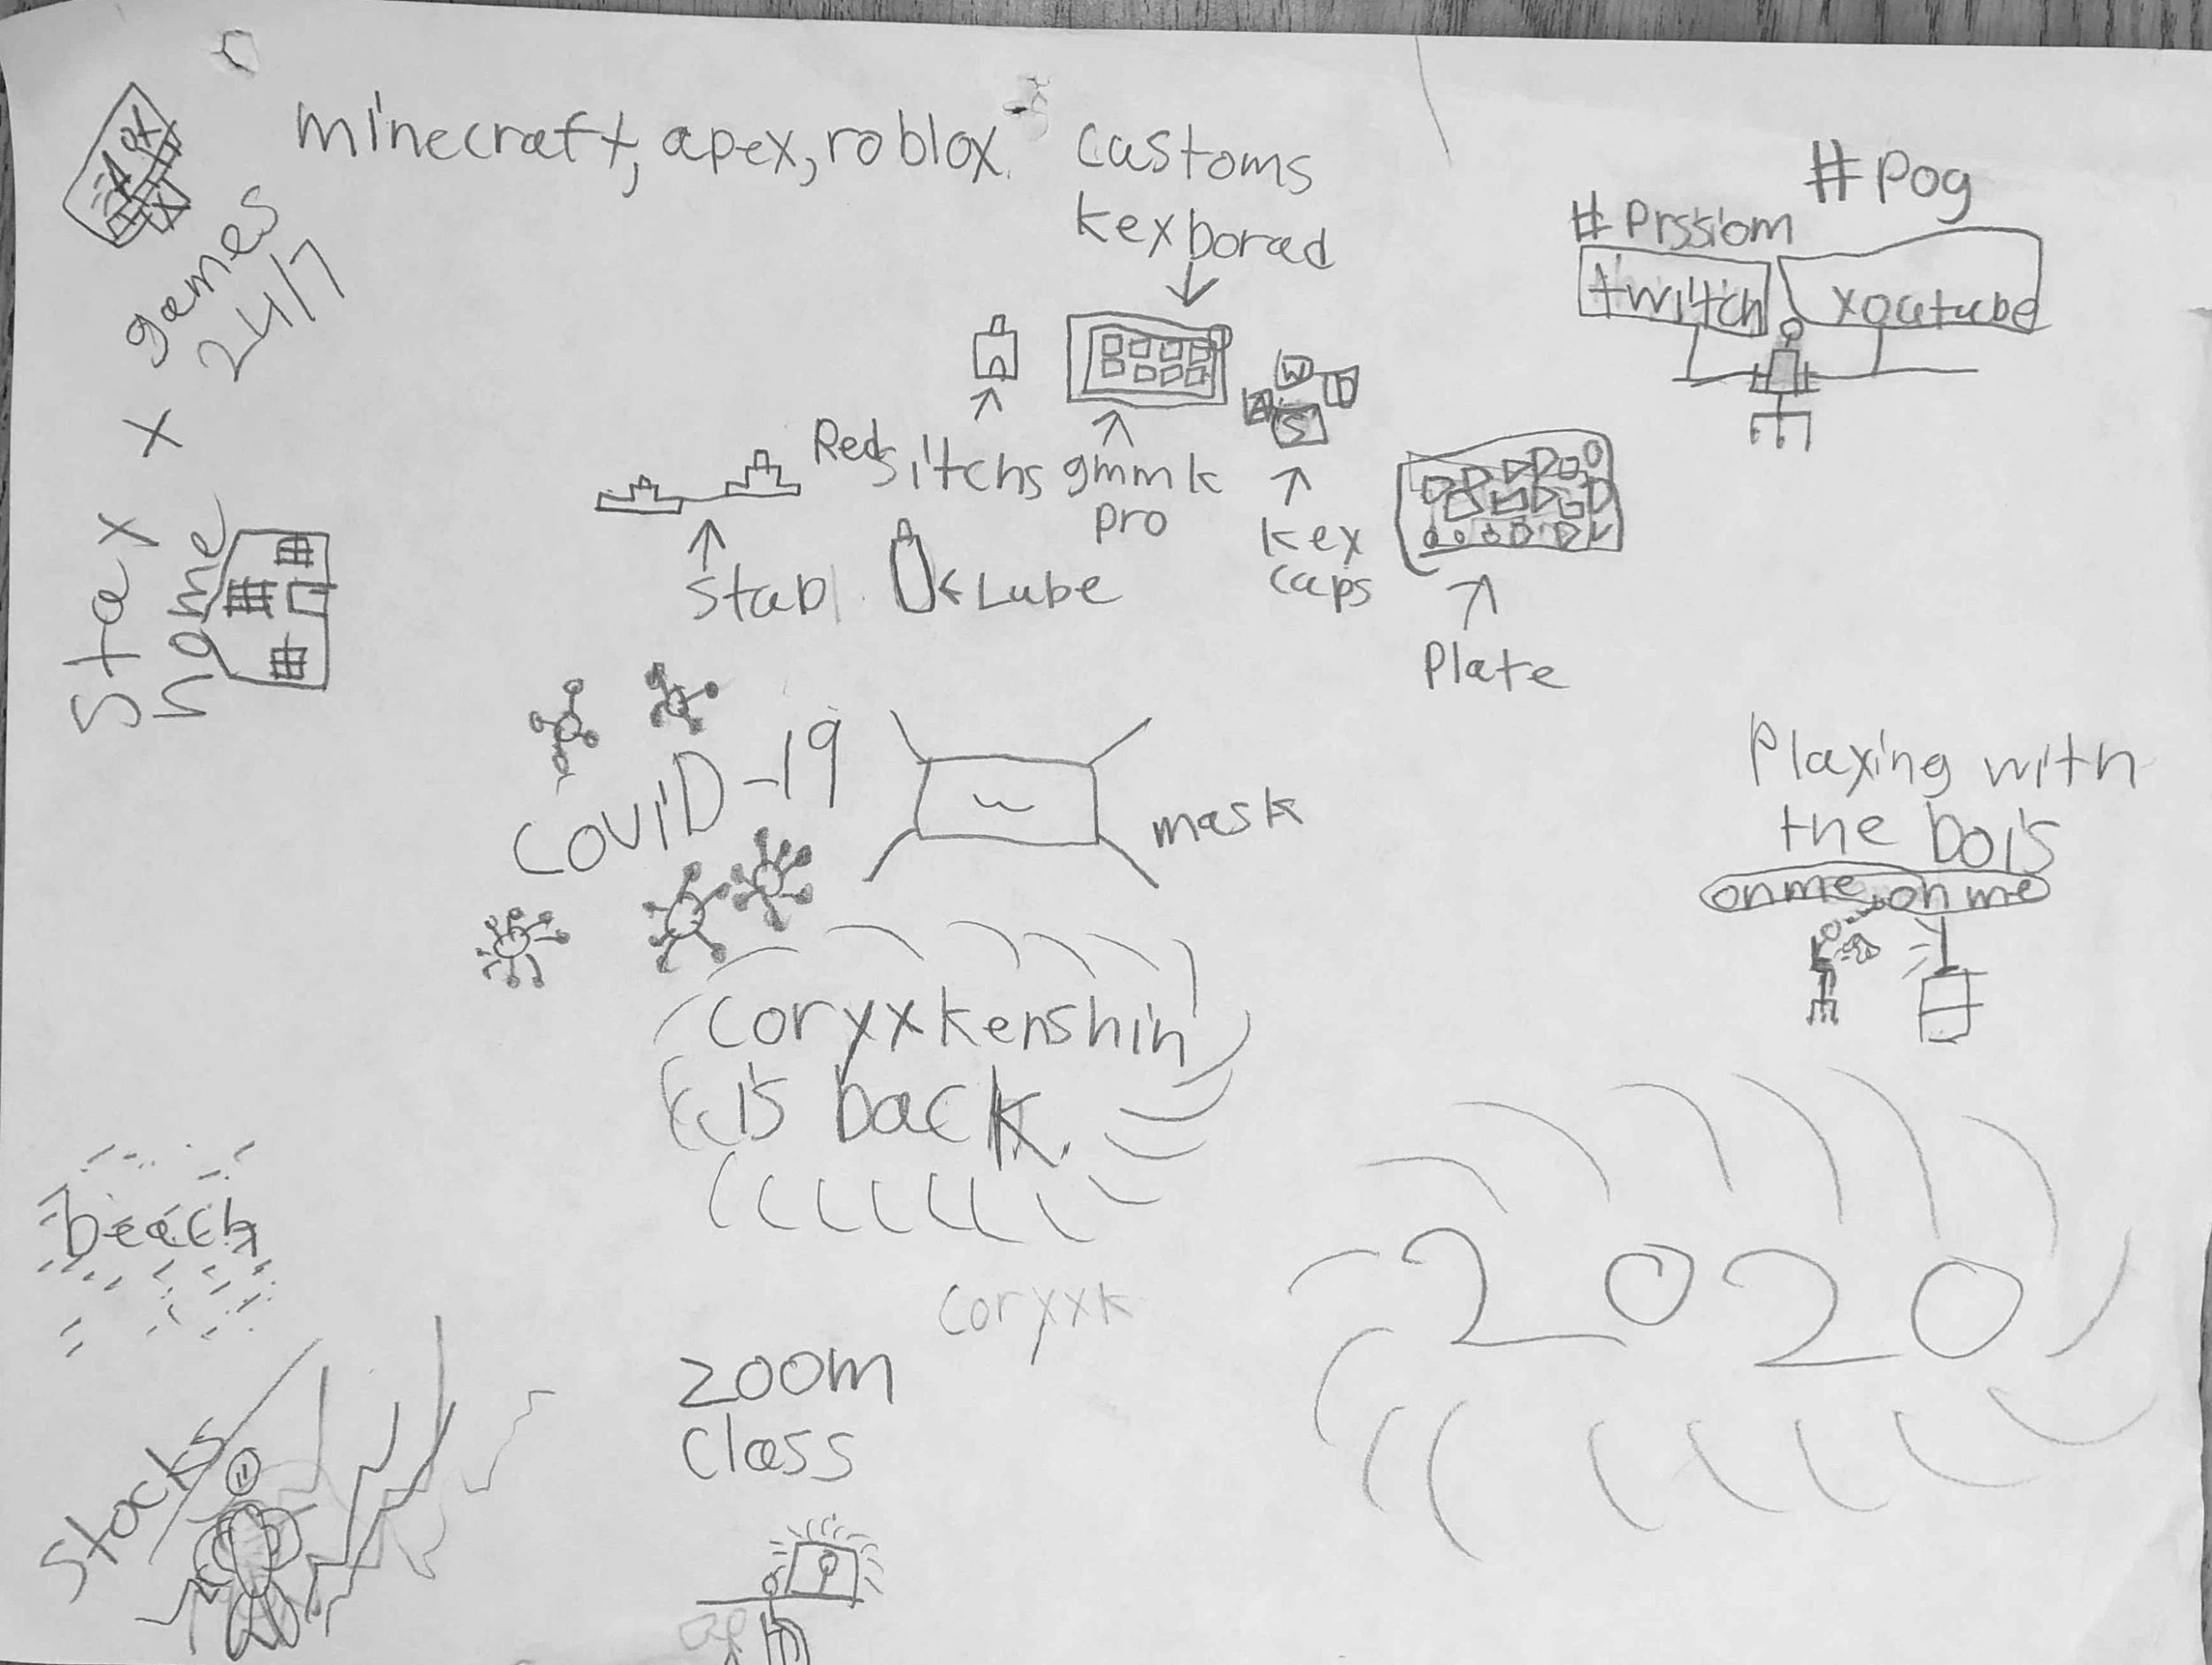 minecraft, apex, roblox.
customs
kexborad
#Pog
#Prssiom
twitch
xoutube
games
24/7
x
Stax
home
Red
Sitchs
gmmk
pro
W
A
S
D
kex
caps
Stabl
Lube
Plate
COVID-19
mask
Plaxing with
the bois
on me, on me
coryxxkenshin
is back.
beach
coryxxk
2020
zoom
class
Stocks